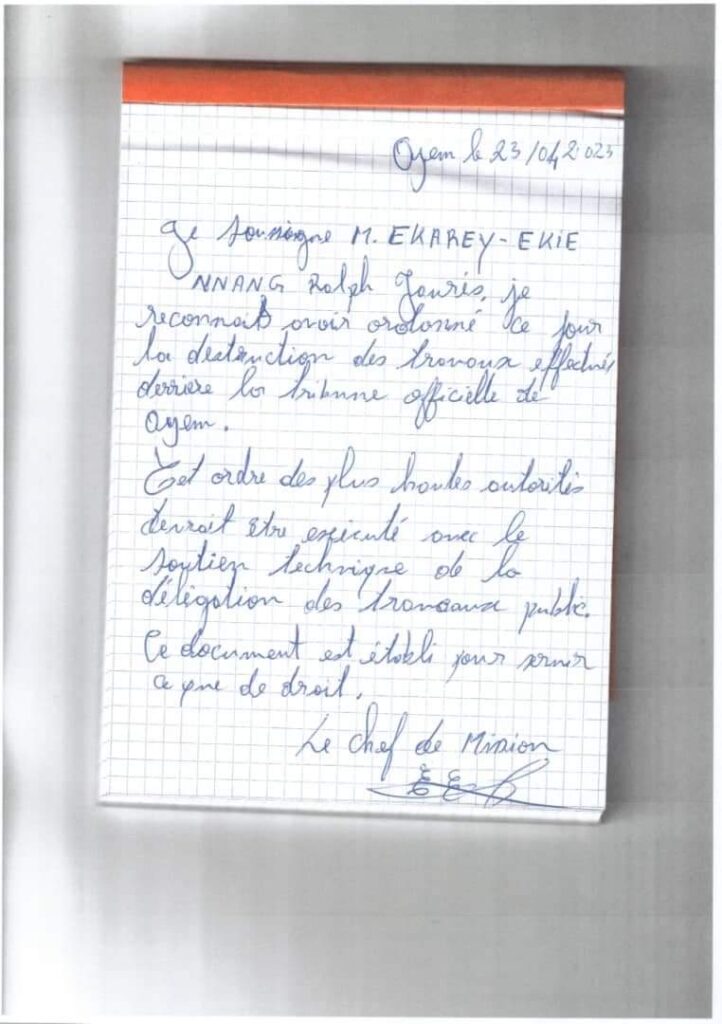 Oyem le 23/04/2023
Je soussigne M. EKAREY-EKIE
NNANG Ralph Jaurès, je
reconnais avoir ordonné ce jour
la destruction des travaux effectués
derriere la tribune officielle de
Oyem.
Cet ordre des plus hautes autorités
devrait être exécuté avec le
soutien technique de la
délégation des travaux public.
Ce document est établi pour servir
ce que de droit.
Le Chef de Mission